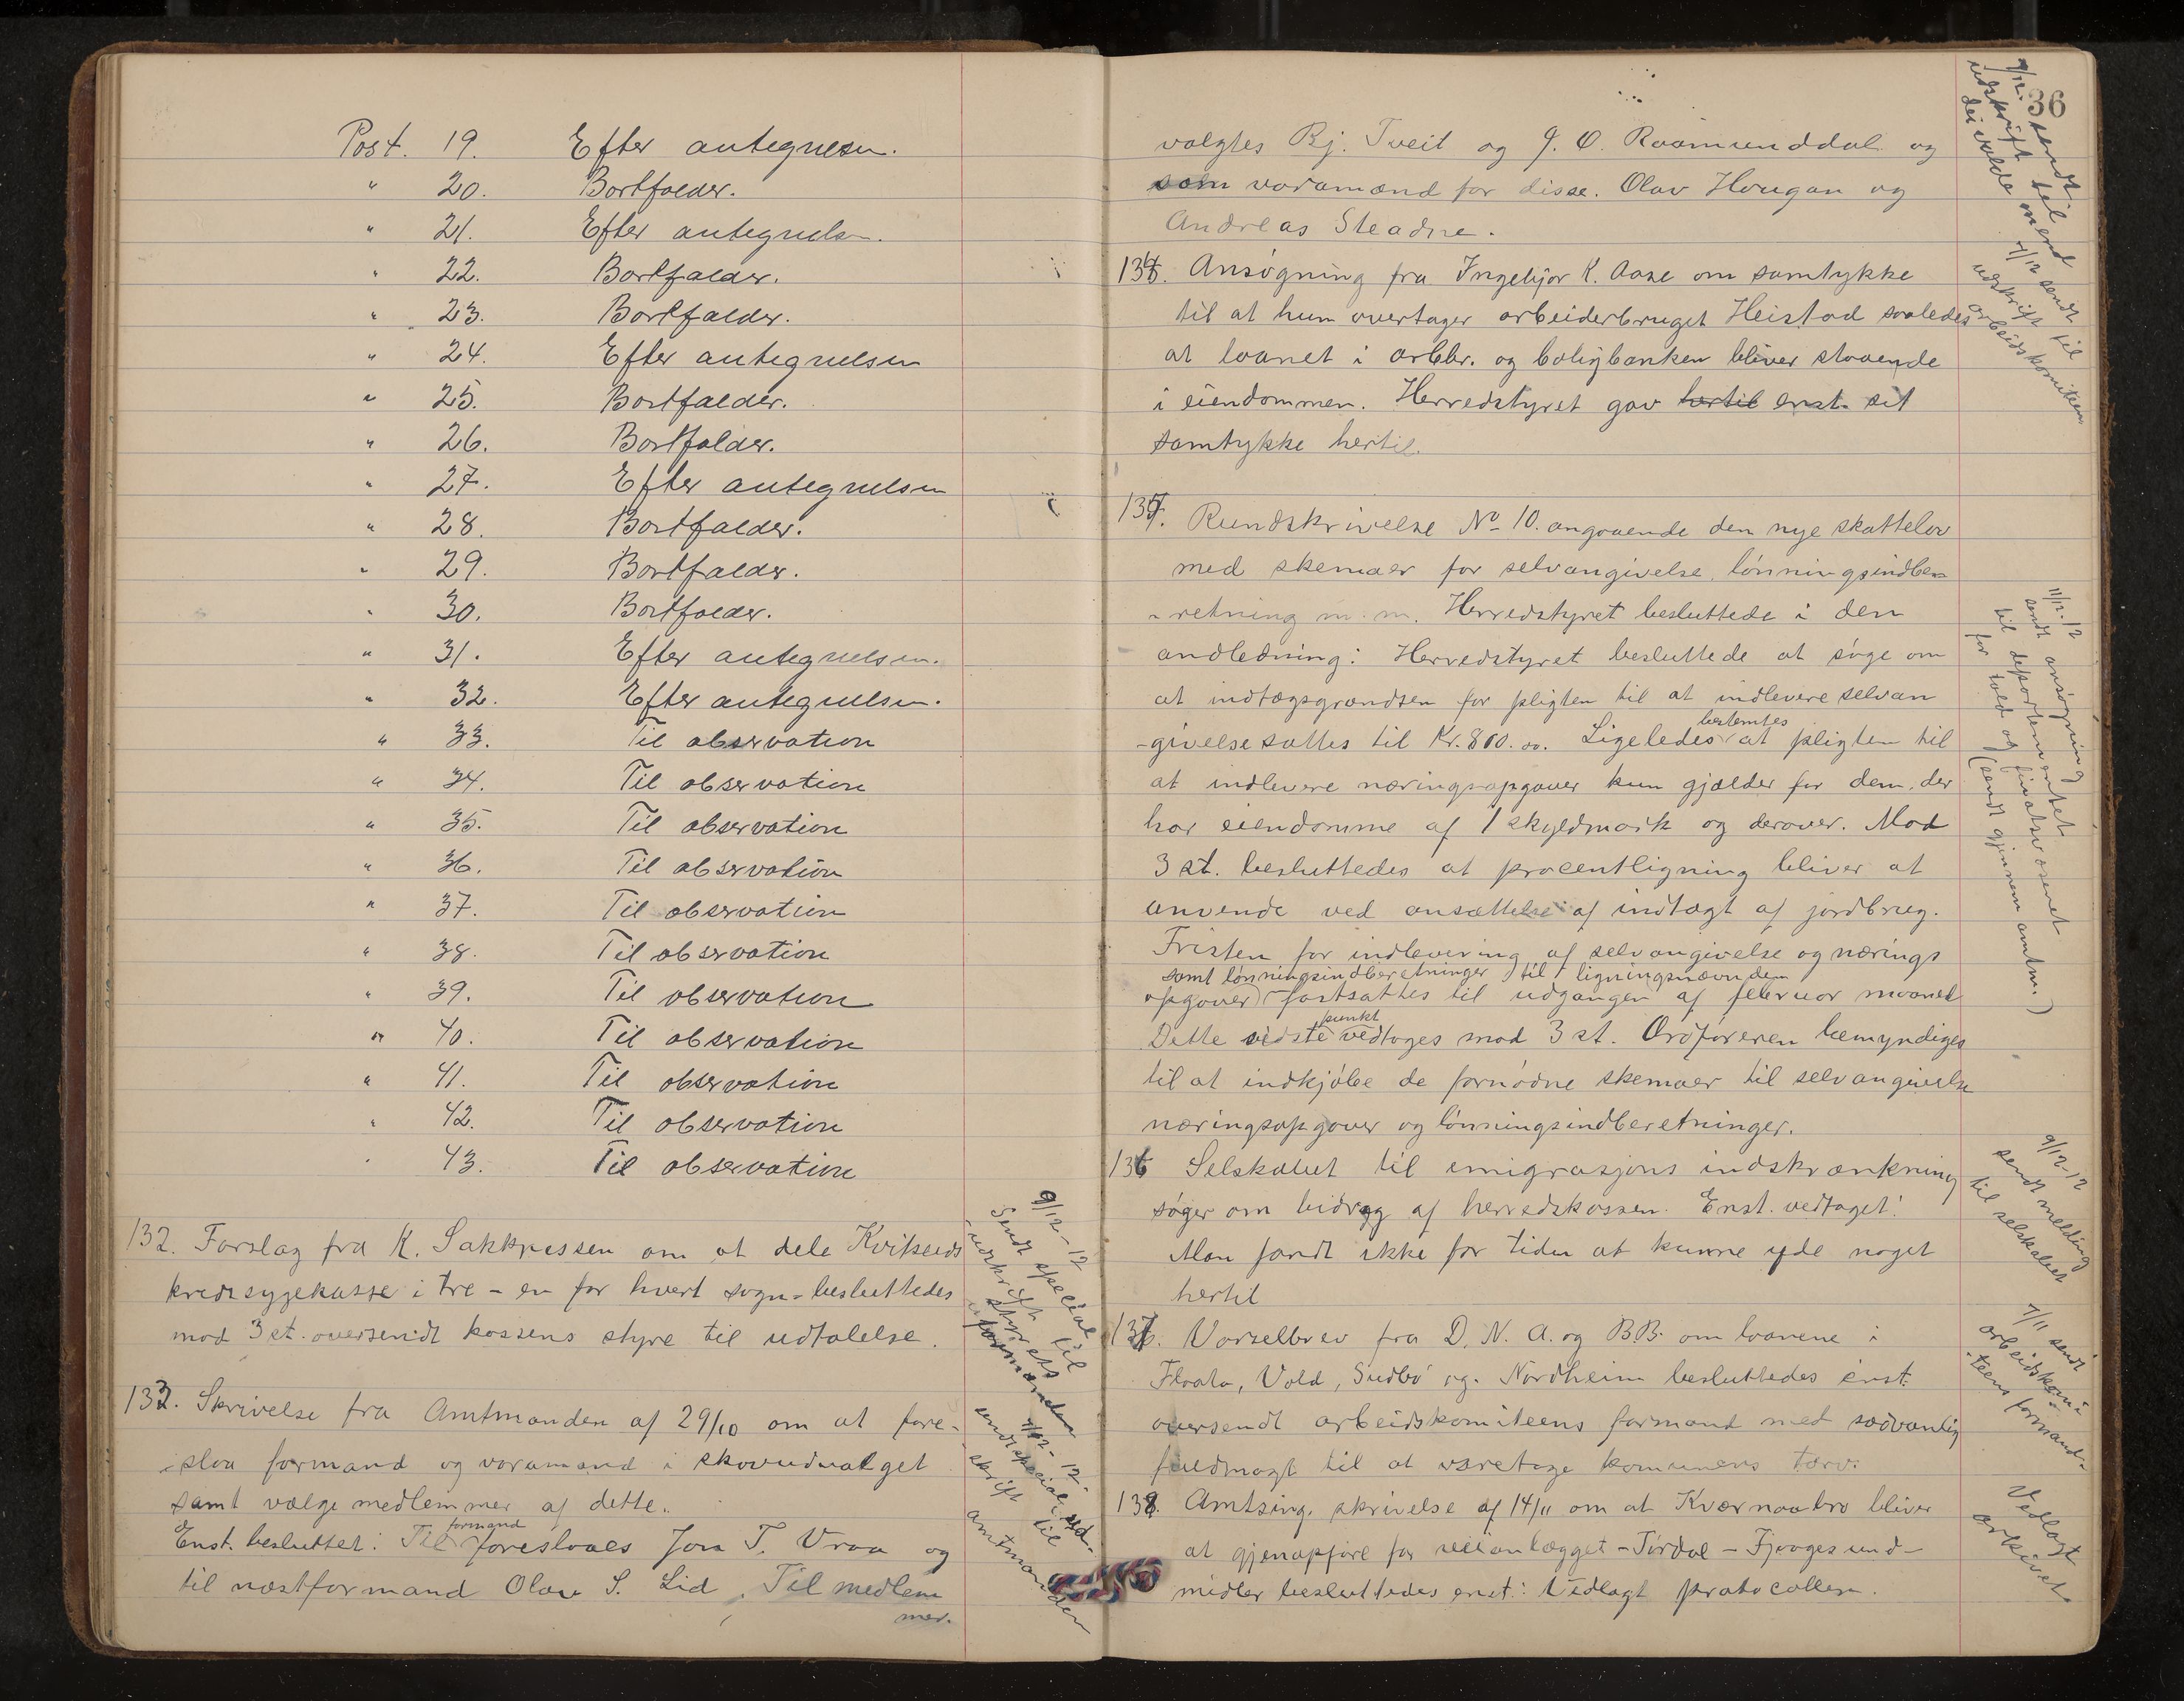 Post. 19. Efter antegnelsen.
" 20. Bortfalder.
" 21. Efter antegnelsen.
" 22. Bortfalder.
" 23. Bortfalder.
" 24. Efter antegnelsen
" 25. Bortfalder.
" 26. Bortfalder.
" 27. Efter antegnelsen
" 28. Bortfalder.
" 29. Bortfalder.
" 30. Bortfalder.
" 31. Efter antegnelsen.
" 32. Efter antegnelsen.
" 33. Til observation
" 34. Til observation
" 35. Til observation
" 36. Til observation
" 37. Til observation
" 38. Til observation
" 39. Til observation
" 40. Til observation
" 41. Til observation
" 42. Til observation
" 43. Til observation
132. Forslag fra K. Sakkriessen om at dele Kviteseids
kredssygekasse i tre - en for hvert sogn - besluttedes
mod 3 st. oversendt kassens styre til udtalelse.
9/12-12
Sendt special
-udskrift til
styrets
formanden
133. Skrivelse fra Amtmanden af 29/10 om at fore-
-slaa formand og varamand i skovudvalget
samt vælge medlemmer af dette.
Enst. besluttet: Til formand foreslaaes Jon T. Vraa og
til næstformand Olav S. Lid. Til medlem
mer.
9/12-12
sendt special ud-
skrift til
amtmanden
36
valgtes Bj. Tveit og J. O. Raamunddal og
som varamænd for disse. Olav Haugan og
Andreas Steadne.
9/12. sendt
udskrift til
de valde mend
134. Ansøgning fra Ingebjør K. Aase om samtykke
til at hun overtager arbeiderbruget Heistad saaledes
at laanet i arbbr. og boligbanken bliver staaende
i eiendommen. Herredstyret gav hertil enst. sit
samtykke hertil.
7/12 sendt
udskrift til
arbeidskomiteen
135. Rundskrivelse No 10. angaaende den nye skattelov
med skemaer for selvangivelse, lønningsindbe-
-retning m. m. Herredstyret besluttede i den
andledning: Herredstyret besluttede at søge om
at indtægsgrændsen for pligten til at indlevere selvan
-givelse sættes til Kr. 800.00. Ligeledes bestemtes at pligten til
at indlevere næringsopgaver kun gjælder for dem, der
har eiendomme af 1 skyldmark og derover. Mod
3 st. besluttedes at procentligning bliver at
anvende ved ansættelse af indtægt af jordbrug.
Fristen for indlevering af selvangivelse og nærings
samt lønningsindberetninger til ligningsnævnden
opgaver fastsattes til udgangen af februar maaned
Dette sidste punkt vedtoges mod 3 st. Ordføreren bemyndiges
til at indkjøbe de fornødne skemaer til selvangivelse
næringsopgaver og lønningsindberetninger.
11/12-12
sendt ansøgning
til departementet
for told og finatsvæsenet
(sendt gjennem amtm.)
136 Selskabet til emigrasjons indskrænkning
søger om bidrag af herredskassen. Enst. vedtaget:
Man fandt ikke for tiden at kunne yde noget
hertil
9/12-12
sendt melding
til selskabet
137. Varselbrev fra D. N. A. og B.B. om laanene i
Flaata, Vold, Sudbø og Nordheim besluttedes enst.
oversendt arbeidskomiteens formand med sædvanlig
fuldmagt til at varetage komunens tarv.
7/11 sendt
arbeidskomi-
-teens formand.
138. Amtsing. skrivelse af 14/11 om at Kvernaabro bliver
at gjenopføre for veianlægget - Tørdal - Fjaagesund -
midler besluttedes enst: Vedlagt protocollen.
Vedlagt
arkivet